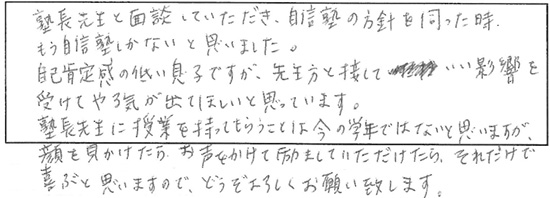 塾長先生と面談していただき、自信塾の方針を伺った時、
もう自信塾しかないと思いました。
自己肯定感の低い息子ですが、先生方と接して いい影響を
受けてやる気が出てほしいと思っています。
塾長先生に授業を持ってもらうことは今の学年ではないと思いますが、
顔を見かけたら、お声をかけて励ましていただけたら、それだけで
喜ぶと思いますので、どうぞよろしくお願い致します。